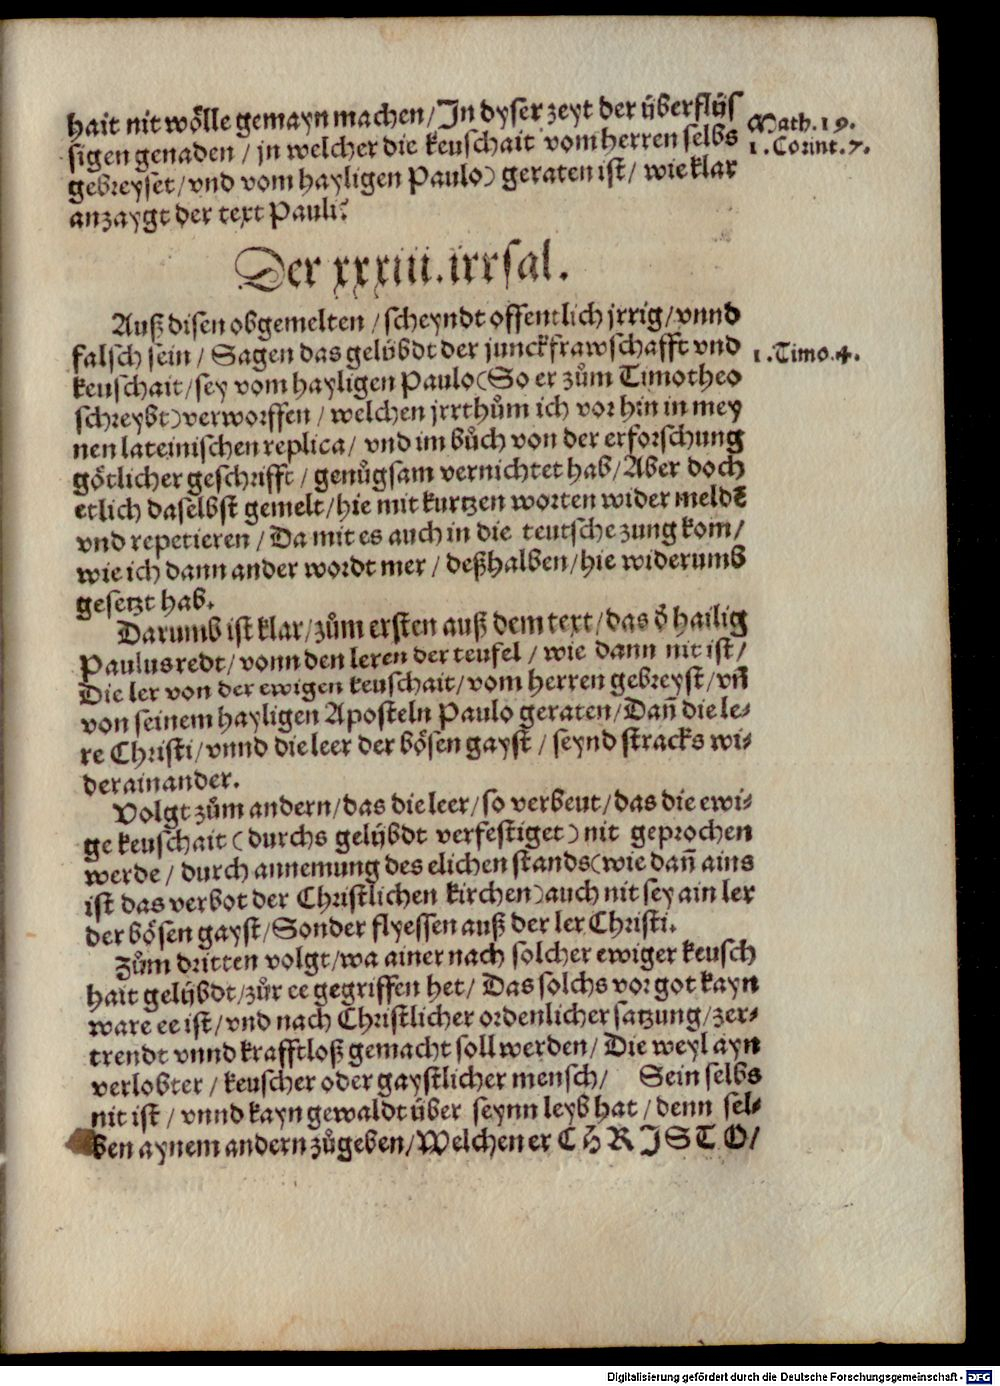 hait nit wölle gemayn machen / In dyser zeyt der überflüs
sigen genaden / jn welcher die keuschait vom herren selbs
gebreyset / vnd vom hayligen Paulo) geraten ist / wie klar
anzaygt der text Pauli?
Math. 19.
1. Corint. 7.
Der xxxiii. irrsal.
Auß disen obgemelten / scheyndt offentlich jrrig / vnnd
falsch sein / Sagen das gelübdt der junckfrawschafft vnd
keuschait / sey vom hayligen Paulo (So er zům Timotheo
schreybt) verworffen / welchen jrrthům ich vor hin in mey
nen lateinischen replica / vnd im bůch von der erforschung
götlicher geschrifft / genůgsam vernichtet hab / Aber doch
etlich daselbst gemelt / hie mit kurtzen worten wider meldē
vnd repetieren / Da mit es auch in die teutsche zung kom /
wie ich dann ander wordt mer / deßhalben / hie widerumb
gesetzt hab.
1. Timo. 4.
Darumb ist klar / zům ersten auß dem text / das d' hailig
Paulus redt / vonn den leren der teufel / wie dann nit ist /
Die ler von der ewigen keuschait / vom herren gebreyst / vñ
von seinem hayligen Aposteln Paulo geraten / Dañ die le-
re Christi / vnnd die leer der bösen gayst / seynd stracks wi-
der ainander.
Volgt zům andern / das die leer / so verbeut / das die ewi-
ge keuschait (durchs gelübdt verfestiget) nit geprochen
werde / durch annemung des elichen stands (wie dañ ains
ist das verbot der Christlichen kirchen) auch nit sey ain ler
der bösen gayst / Sonder flyessen auß der ler Christi.
Zům dritten volgt / wa ainer nach solcher ewiger keusch
hait gelübdt / zůr ee gegriffen het / Das solchs vor got kayn
ware ee ist / vnd nach Christlicher ordenlicher satzung / zer-
trendt vnnd krafftloß gemacht soll werden / Die weyl ayn
verlobter / keuscher oder gaystlicher mensch / Sein selbs
nit ist / vnnd kayn gewaldt über seynn leyb hat / denn sel-
ben aynem andern zůgeben / Welchen er CHRISTO /
Digitalisierung gefördert durch die Deutsche Forschungsgemeinschaft - DFG